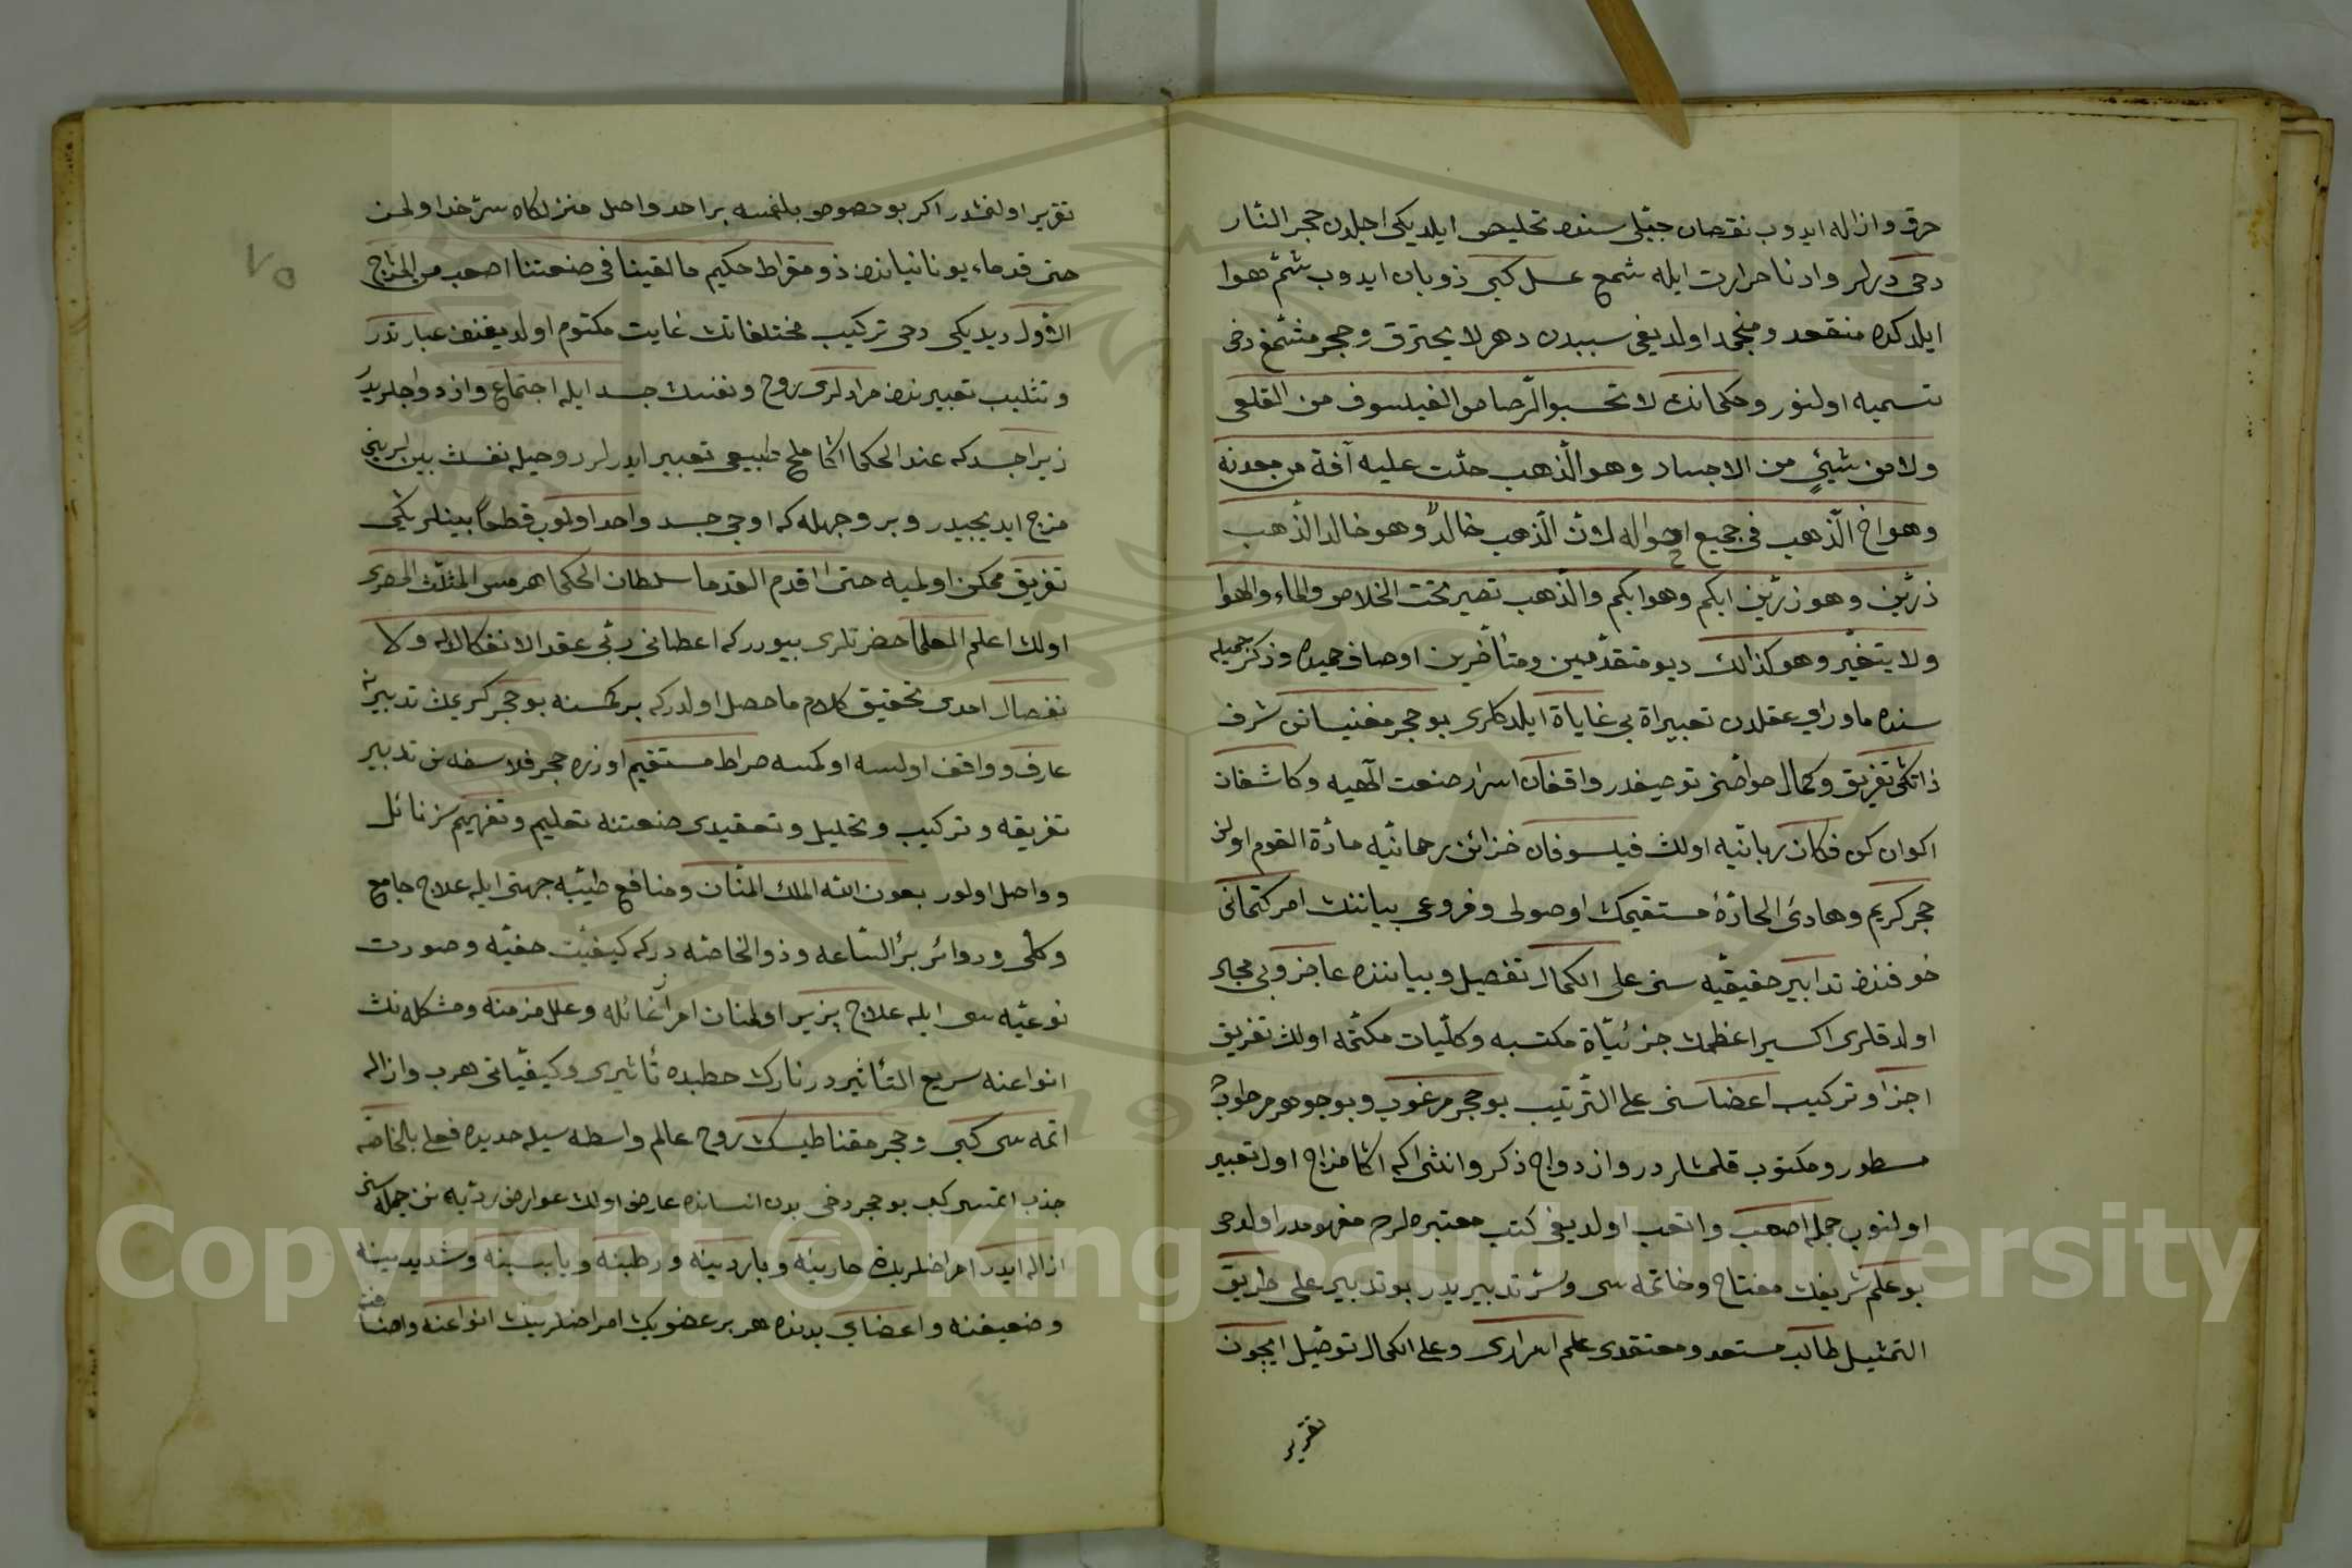 حرق و ازاله ایدوب نقصان جبلی سنده تخلیص ایلدیکی اجلدن حجر النار
دخی دیرلر و ادنا حرارت ایله شمع عسل کبی ذوبان ایدوب شم هوا
ایلدکده منقعد و منجمد اولدیغی سببدن دهن لا یحترق و حجر مشمع دخی
تسمیه اولنور و حکمانك لا تحسبوا الرصاص الفیلسوف من القلعی
ولا من شیئ من الاجساد وهو الذهب حلت علیه آفة من معدنه
وهو اخ الذهب فی جمیع احواله لان الذهب خالد وهو خالد الذهب
زرین وهو زرین ابکم وهو ابکم والذهب تصیر تحت الخلاص والماء والهوا
ولا یتغیر وهو كذالك دیو متقدمین و متأخرین اوصاف حمیده و ذکر جمیله
سنده ماورای عقلدن تعبیراة بی غایاة ایلدکلری بو حجر مغنیسانی شرف
ذاتكی تفریق و کمال خواصنی توصیفدر واقفان اسرار صنعت الهیه و کاشفان
اکوان کن فکان ربانیه اولان فیلسوفان خزائن رحمانیه مادة القوم اولان
حجر کریم و هادئ الجادۀ مستقیمك اوصولی و فروعی بیاننك امر کتمانی
خوفنده تدابیر حقیقیه سنی علی الکمال تفصیل و بیاننده عاجز و بی مجال
اولدقلری اکسیر اعظمك جزئیاة مکتسبه و کلیات مکتمه اولان تفریق
اجزا و ترکیب اعضاسنی علی الترتیب بو حجر مرغوب و بو جوهر مطلوبده
مسطور و مکتوب قلمشلردر و ازدواج ذکر و انثی که اکا مزاج اول تعبیر
اولنوب جمله اصعب و اتعب اولدیغی کتب معتبره لرم مفهومدر اولدخی
بو علم شریفك مفتاح و خاتمه سی و سر تدبیریدر بو تدبیر علی طریق
التمثیل طالب مستعد و معتقدی علم اسراری و علی الکمال توصیل ایچون
تقریر
٧٥
تقریر اولنمشدر اکر بو خصوص بلنمسه بر احد واصل منزلکاه سر خدا اولمز
حتی قدماء یونانیاندن ذو مقراط حکیم ما لقینا فی صنعتنا اصعب من المزاج
الاول دیدیکی دخی ترکیب مختلفاتك غایت مکتوم اولدیغندن عبارتدر
و تثلیث تعبیرندن مرادلری روح و نفسك جسد ایله اجتماع و ازدواجلریدر
زیرا جسد که عند الحکما اکا ملح طبیعی تعبیر ایدرلر روحیله نفسك بینلرینی
مزج ایدیجیدر و بر وجهله که اوچی جسد واحد اولوب قطعا بینلرینكی
تفریق ممکن اولمیه حتی اقدم القدما سلطان الحکما هرمس المثلث المصری
اولان اعلم العلما حضرتلری بیوررکه اعطانی ربی عقد الانفكاك له ولا
نفصال امدی تحقیق کلام ما حصل اولدرکه بر کمسنه بو حجر کریمك تدبیرینه
عارف و واقف اولسه اولکمسه صراط مستقیم اوزره حجر فلاسفه نك تدبیر
تفریقه و ترکیب و تحلیل و تعقیدی صنعتنه تعلیم و تفهیمسز نائل
و واصل اولور بعون الله الملك المنان و منافع طبیه جهتی ایله علاج جامع
و کلی و دوائر برأ الساعه و ذو الخاصه درکه کیفیت خفیه و صورت
نوعیه سی ایله علاج پزیر اولمنان امراض غائله و علل مزمنه و مشکله نك
انواعنه سریع التأثیردر نارك حطبده تأثیری و کیفیاتی هرب و ازاله
اتمه سی کبی و حجر مقناطیسك روح عالم واسطه سیله حدیده فعلی بالخاصه
جذب اتمسی کبی بو حجر دخی بدن انسانده عارض اولان عوارض ردیه نك جمله سنی
ازاله ایدر امراضلریدن حارینه و باردینه و رطبنه و یابسینه و شدیدینه
و ضعیفنه و اعضای بدنده هر بر عضویك امراضلرینك انواعنه و اصنافنه